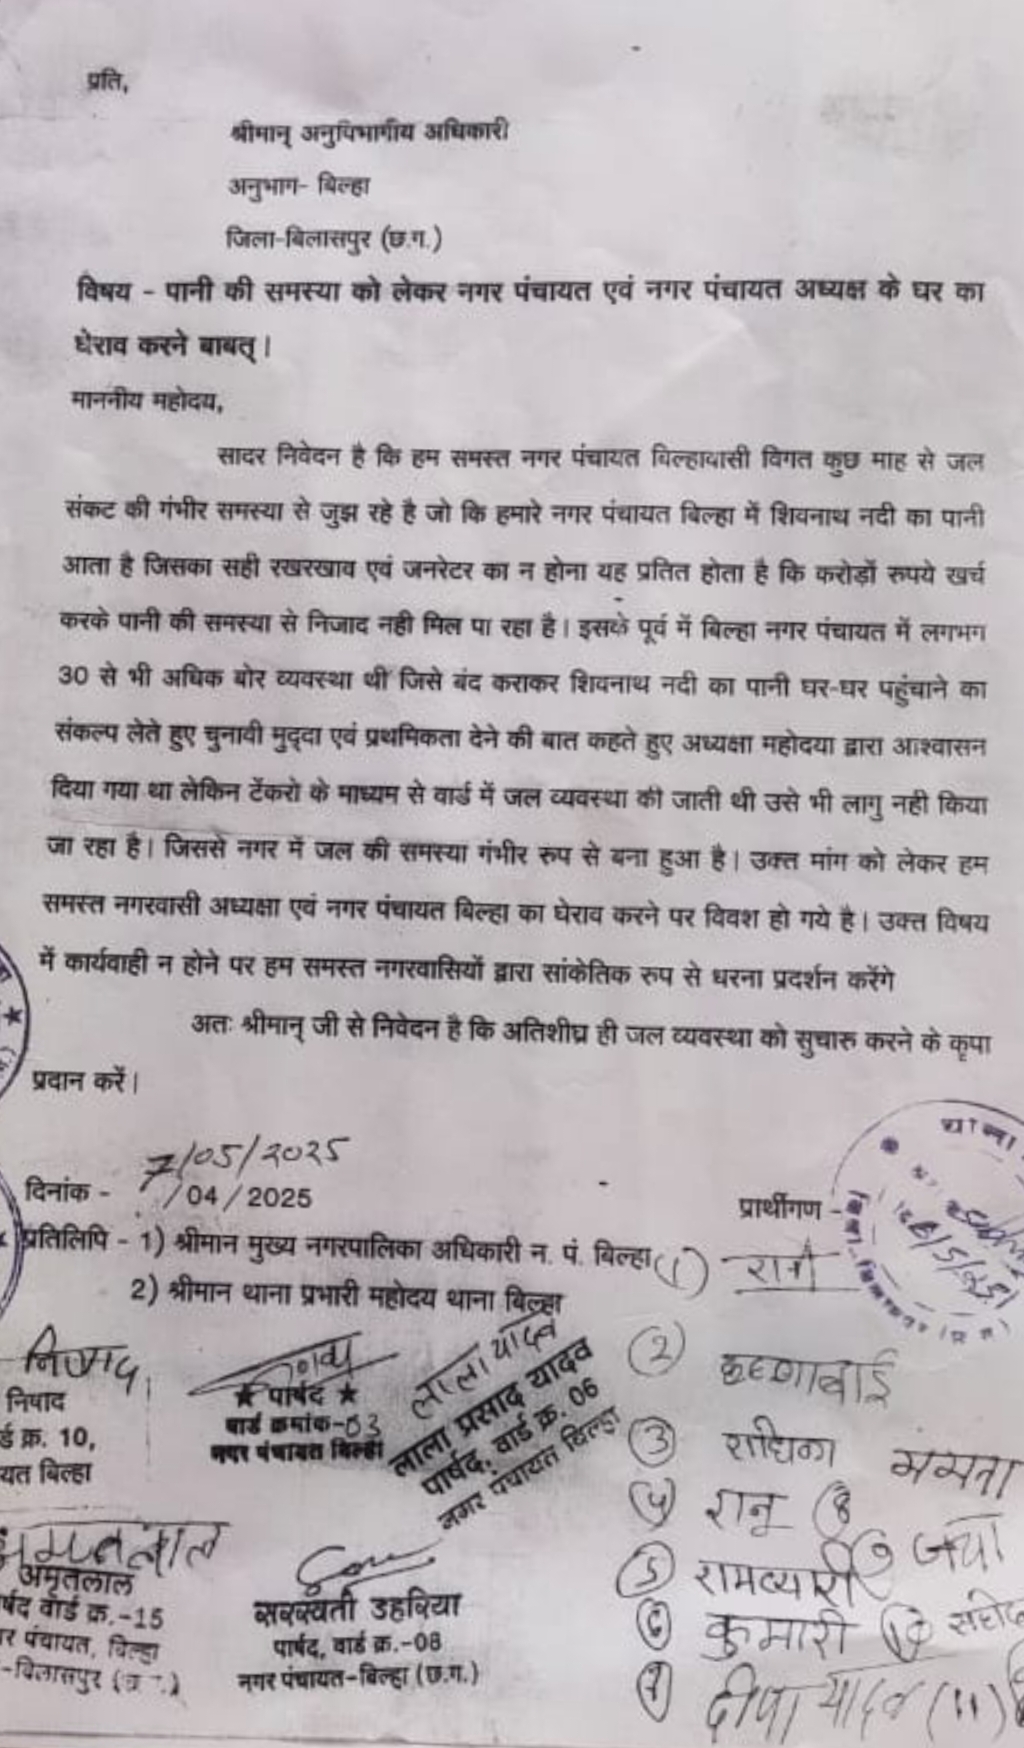 प्रति,
श्रीमान् अनुविभागीय अधिकारी
अनुभाग- बिल्हा
जिला-बिलासपुर (छ.ग.)
विषय - पानी की समस्या को लेकर नगर पंचायत एवं नगर पंचायत अध्यक्ष के घर का
घेराव करने बाबत् ।
माननीय महोदय,
सादर निवेदन है कि हम समस्त नगर पंचायत बिल्हावासी विगत कुछ माह से जल
संकट की गंभीर समस्या से जुझ रहे है जो कि हमारे नगर पंचायत बिल्हा में शिवनाथ नदी का पानी
आता है जिसका सही रखरखाव एवं जनरेटर का न होना यह प्रतित होता है कि करोड़ों रुपये खर्च
करके पानी की समस्या से निजाद नही मिल पा रहा है। इसके पूर्व में बिल्हा नगर पंचायत में लगभग
30 से भी अधिक बोर व्यवस्था थी जिसे बंद कराकर शिवनाथ नदी का पानी घर-घर पहुंचाने का
संकल्प लेते हुए चुनावी मुद्दा एवं प्रथमिकता देने की बात कहते हुए अध्यक्षा महोदया द्वारा आश्वासन
दिया गया था लेकिन टेंकरो के माध्यम से वार्ड में जल व्यवस्था की जाती थी उसे भी लागु नही किया
जा रहा है। जिससे नगर में जल की समस्या गंभीर रुप से बना हुआ है। उक्त मांग को लेकर हम
समस्त नगरवासी अध्यक्षा एवं नगर पंचायत बिल्हा का घेराव करने पर विवश हो गये है। उक्त विषय
में कार्यवाही न होने पर हम समस्त नगरवासियों द्वारा सांकेतिक रुप से धरना प्रदर्शन करेंगे
अतः श्रीमान् जी से निवेदन है कि अतिशीघ्र ही जल व्यवस्था को सुचारु करने के कृपा
प्रदान करें।
7/05/2025
दिनांक - /04/2025
प्रार्थीगण -
थाना
प्रतिलिपि - 1) श्रीमान मुख्य नगरपालिका अधिकारी न. पं. बिल्हा
(1)
2) श्रीमान थाना प्रभारी महोदय थाना बिल्हा
निषाद
निषाद
र्ड क्र. 10,
यत बिल्हा
★ पार्षद ★
वार्ड क्रमांक-03
नगर पंचायत बिल्हा
लाला यादव
लाला प्रसाद यादव
पार्षद, वार्ड क्र. 06
नगर पंचायत बिल्हा
(2)
(3) राधिका ममता
(4) रानू (8)
(5) रामप्यारी (9) जया
(6) कुमारी (10)
(7) दीपा यादव (11)
अमृतलाल
अमृतलाल
र्षद वार्ड क्र.-15
र पंचायत, बिल्हा
-बिलासपुर
सरस्वती डहरिया
पार्षद, वार्ड क्र.-08
नगर पंचायत-बिल्हा (छ.ग.)